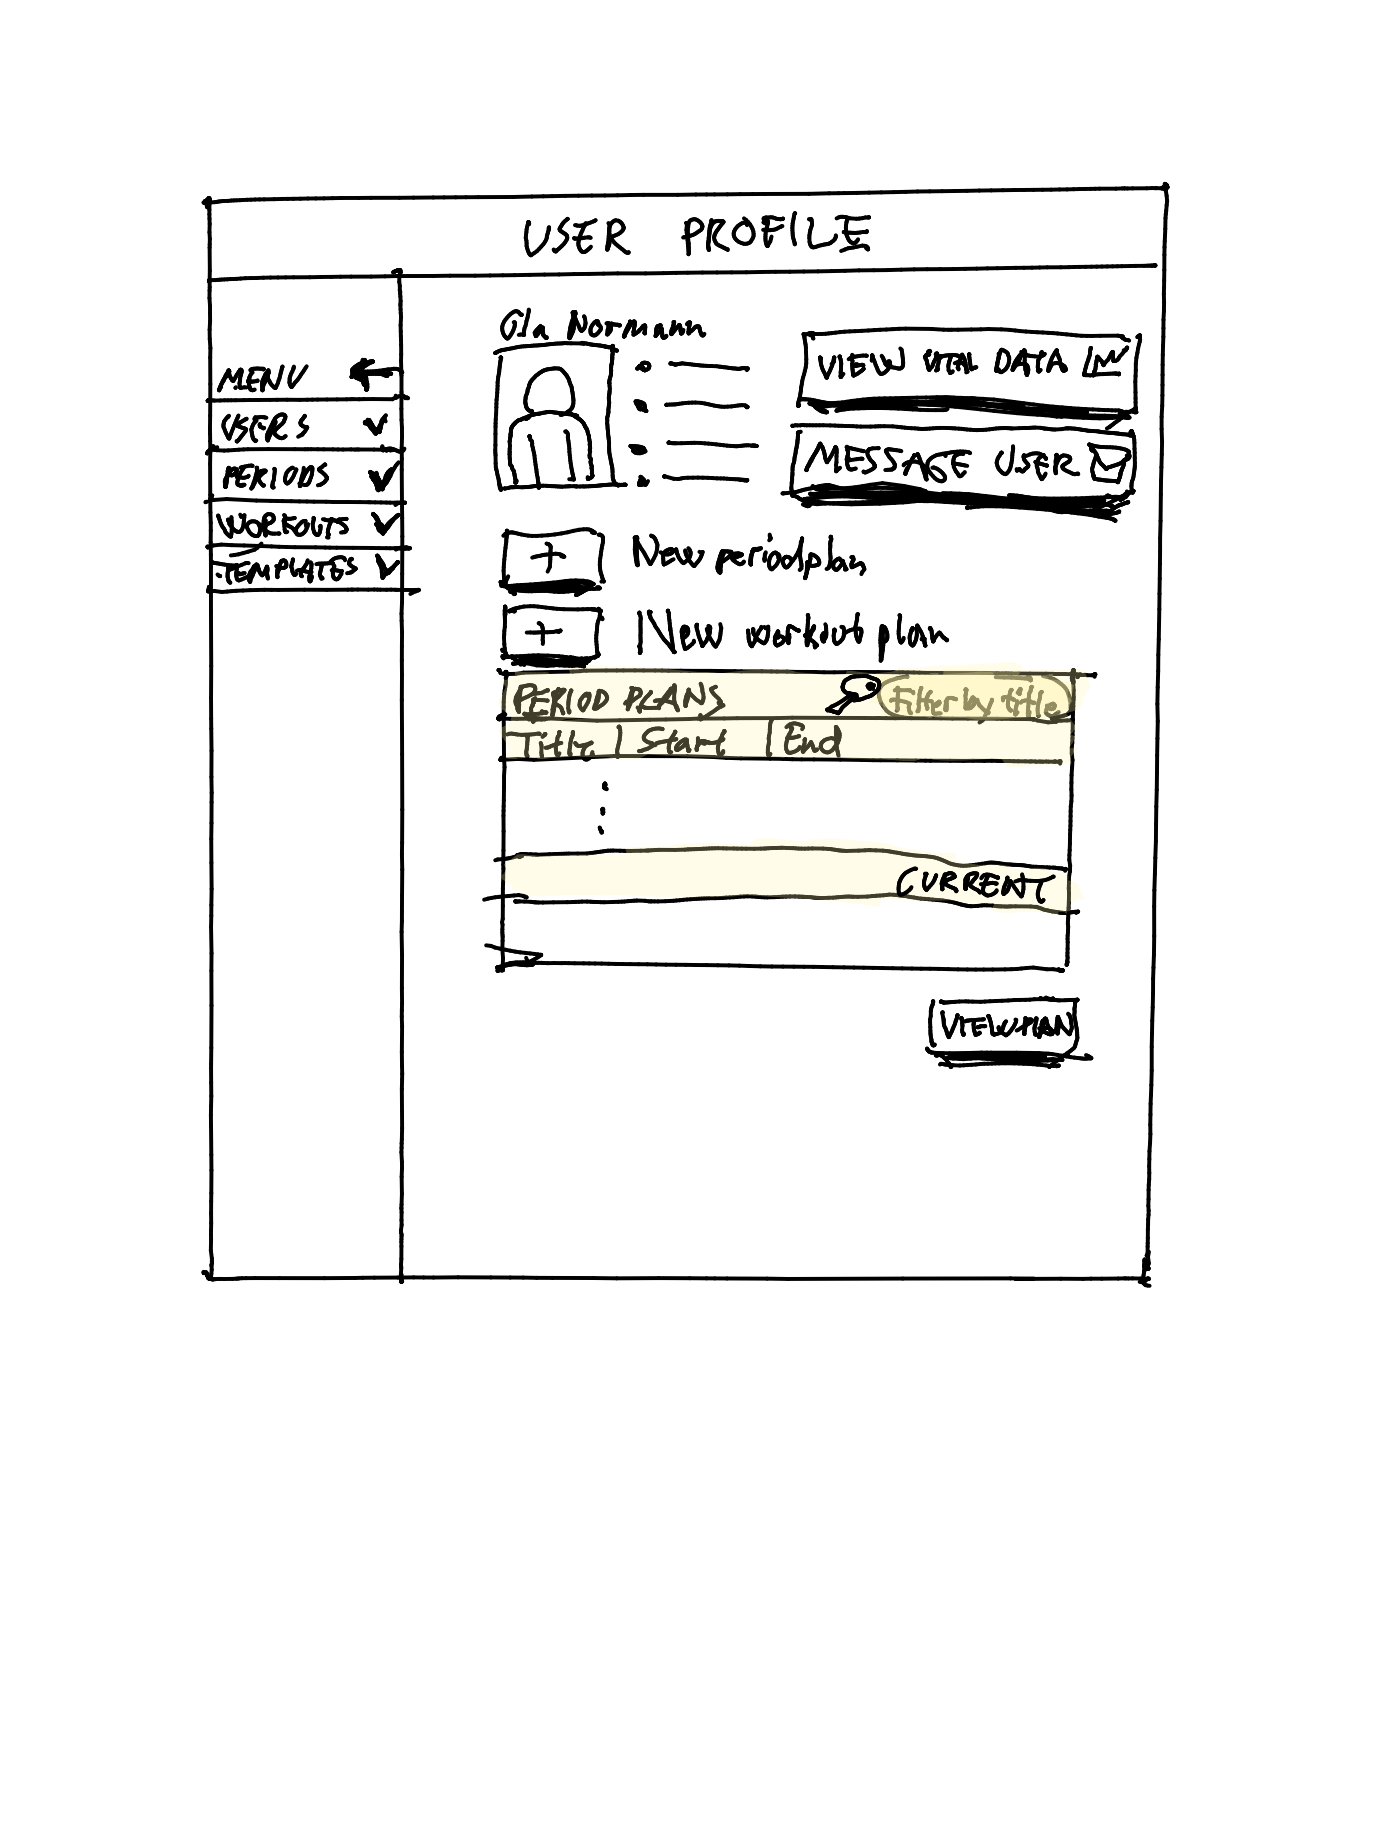 USER PROFILE
MENU
USERS
PERIODS
WORKOUTS
TEMPLATES
Ola Normann
VIEW VITAL DATA
MESSAGE USER
+ New periodplan
+ New workout plan
PERIOD PLANS Filter by title
Title | Start | End
CURRENT
VIEW PLAN